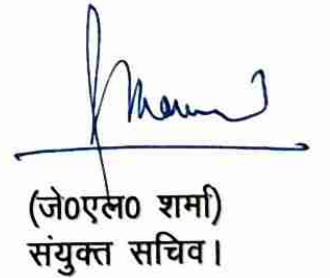 (जे०एल० शर्मा)
संयुक्त सचिव।